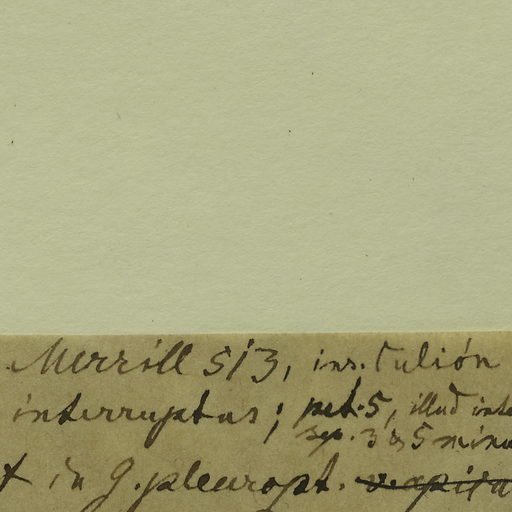 Merrill 513, ins. Culión
interruptus; pet. 5, illud
sep. 3 & 5
in G. pleuropt.